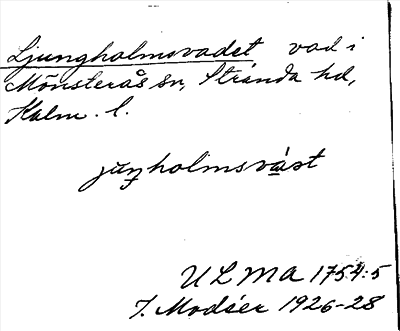 Ljungholmsvadet vad i
Mönsterås sn, Stranda hd,
Kalm. l.
ULMA 1754:5
I. Modéer 1926-28